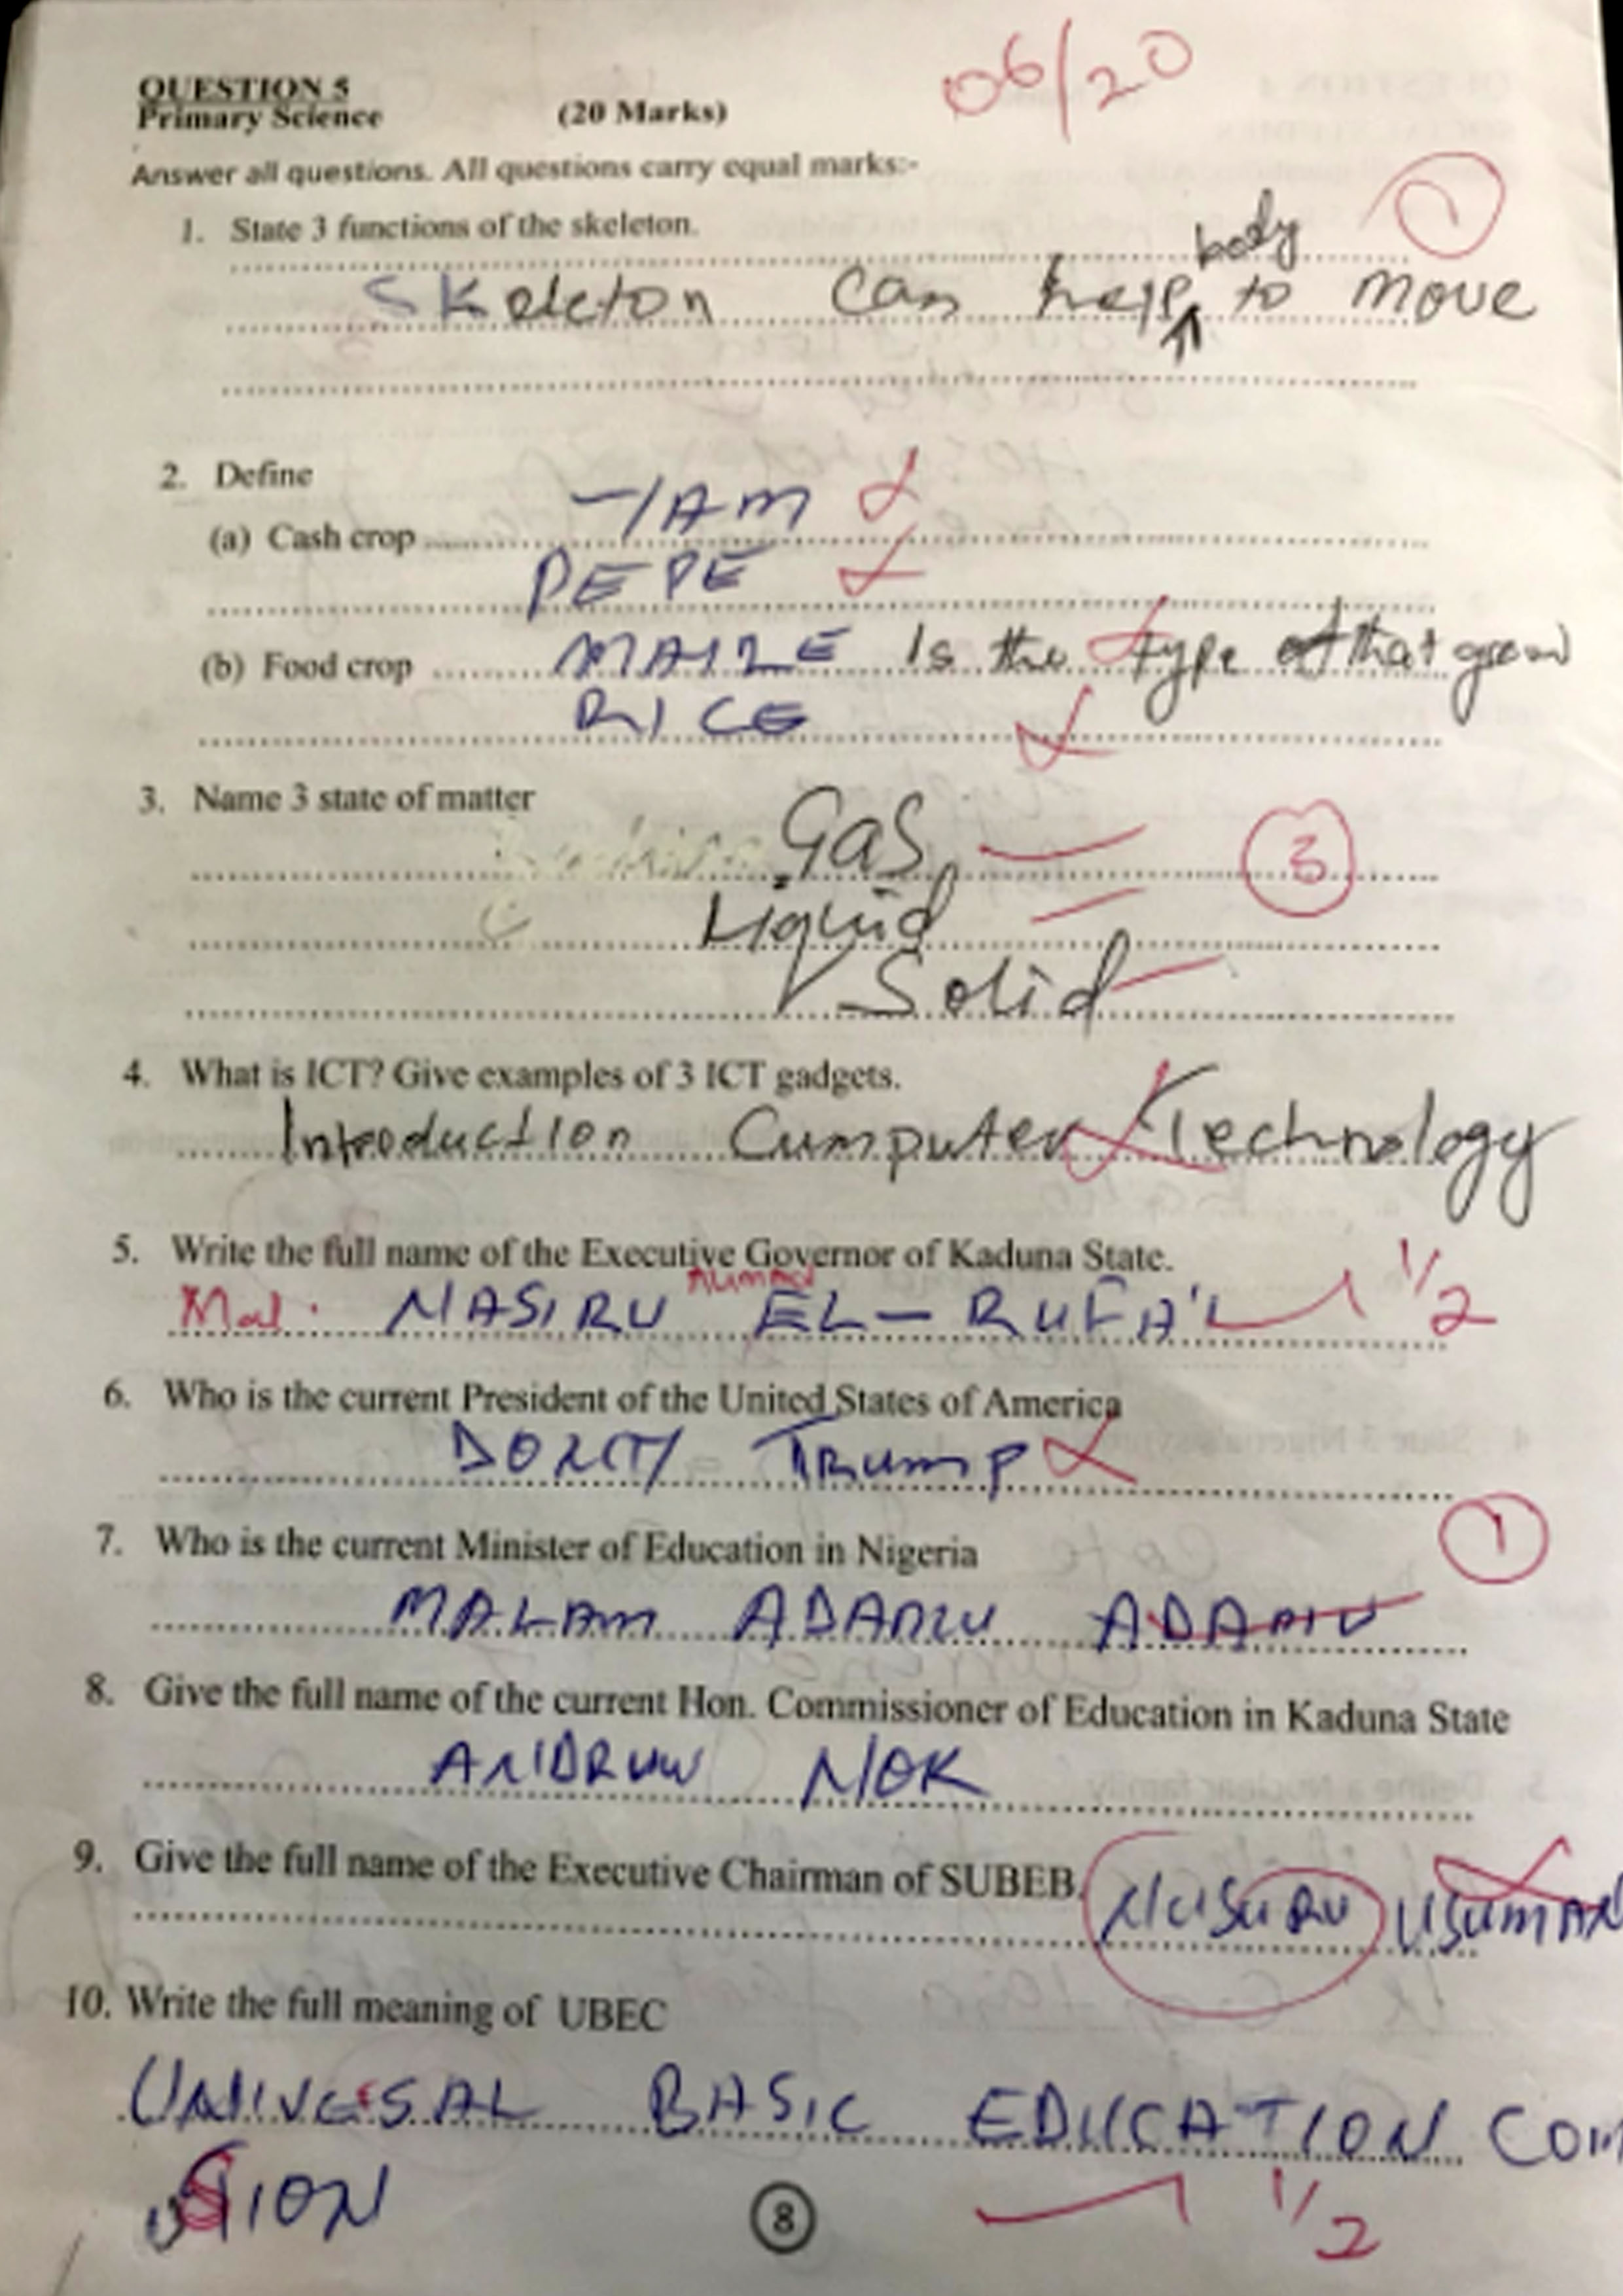 06/20
QUESTION 5
Primary Science (20 Marks)
Answer all questions. All questions carry equal marks:-
1. State 3 functions of the skeleton. 1
body
Skeleton can help to move
2. Define
(a) Cash crop YAM
PEPE
(b) Food crop MAIZE Is the type of that grow
RICE
3. Name 3 state of matter
Gas 3
Liquid
Solid
4. What is ICT? Give examples of 3 ICT gadgets.
Introduction Cumputer Technology
5. Write the full name of the Executive Governor of Kaduna State. 1/2
Ahmad
Mal. NASIRU EL-RUFA'I
6. Who is the current President of the United States of America
Trump
7. Who is the current Minister of Education in Nigeria 1
MALAM ADAMU ADAMU
8. Give the full name of the current Hon. Commissioner of Education in Kaduna State
ANDRUW NOK
9. Give the full name of the Executive Chairman of SUBEB.
NUSURU USUMAN
10. Write the full meaning of UBEC
UNIVESAL BASIC EDUCATION COM
SION
8 1/2